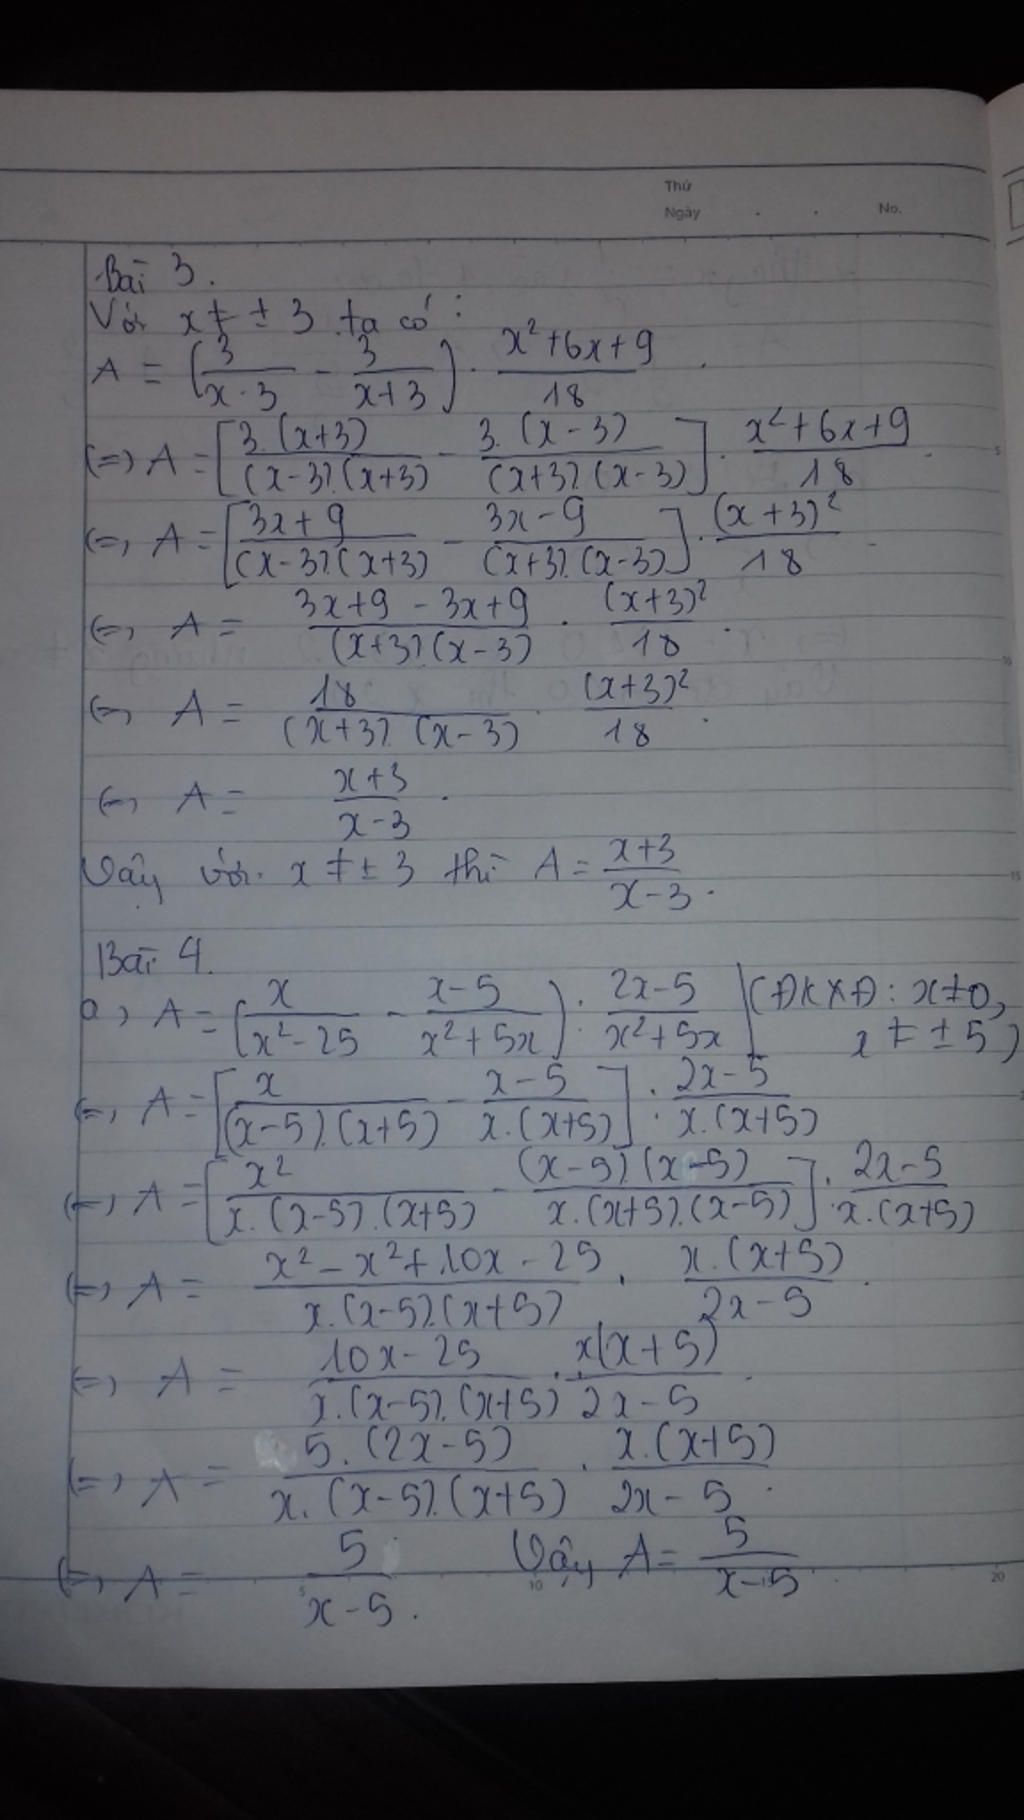 Thứ
Ngày . . No.
Bài 3.
Với x ≠ ± 3 ta có :
A = (3/(x-3) - 3/(x+3)) . (x²+6x+9)/18 .
(=) A = [3.(x+3)/((x-3).(x+3)) - 3.(x-3)/((x+3).(x-3))] . (x²+6x+9)/18 .
(=) A = [(3x+9)/((x-3).(x+3)) - (3x-9)/((x+3).(x-3))] . (x+3)²/18
(=) A = (3x+9-3x+9)/((x+3).(x-3)) . (x+3)²/18 .
(=) A = 18/((x+3).(x-3)) . (x+3)²/18 .
(=) A = (x+3)/(x-3) .
Vậy với x ≠ ± 3 thì A = (x+3)/(x-3) .
Bài 4.
a, A = (x/(x²-25) - (x-5)/(x²+5x)) : (2x-5)/(x²+5x) | (ĐKXĐ: x≠0, x ≠ ± 5)
(=) A = [x/((x-5).(x+5)) - (x-5)/(x.(x+5))] : (2x-5)/(x.(x+5))
(=) A = [x²/(x.(x-5).(x+5)) - (x-5)(x-5)/(x.(x+5).(x-5))] : (2x-5)/(x.(x+5))
(=) A = (x²-x²+10x-25)/(x.(x-5).(x+5)) . x.(x+5)/(2x-5) .
(=) A = (10x-25)/(x.(x-5).(x+5)) . x(x+5)/(2x-5) .
(=) A = 5.(2x-5)/(x.(x-5).(x+5)) . x.(x+5)/(2x-5) .
(=) A = 5/(x-5) . Vậy A = 5/(x-5)
5 10 15 20